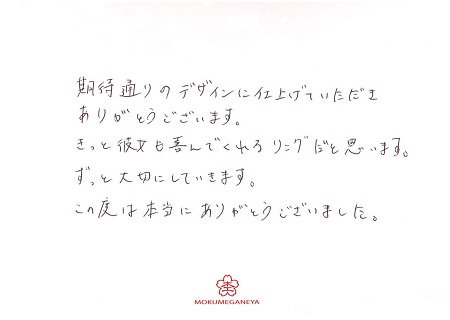 期待通りのデザインに仕上げていただき
ありがとうございます。
きっと彼女も喜んでくれるリングだと思います。
ずっと大切にしていきます。
この度は本当にありがとうございました。
MOKUMEGANEYA